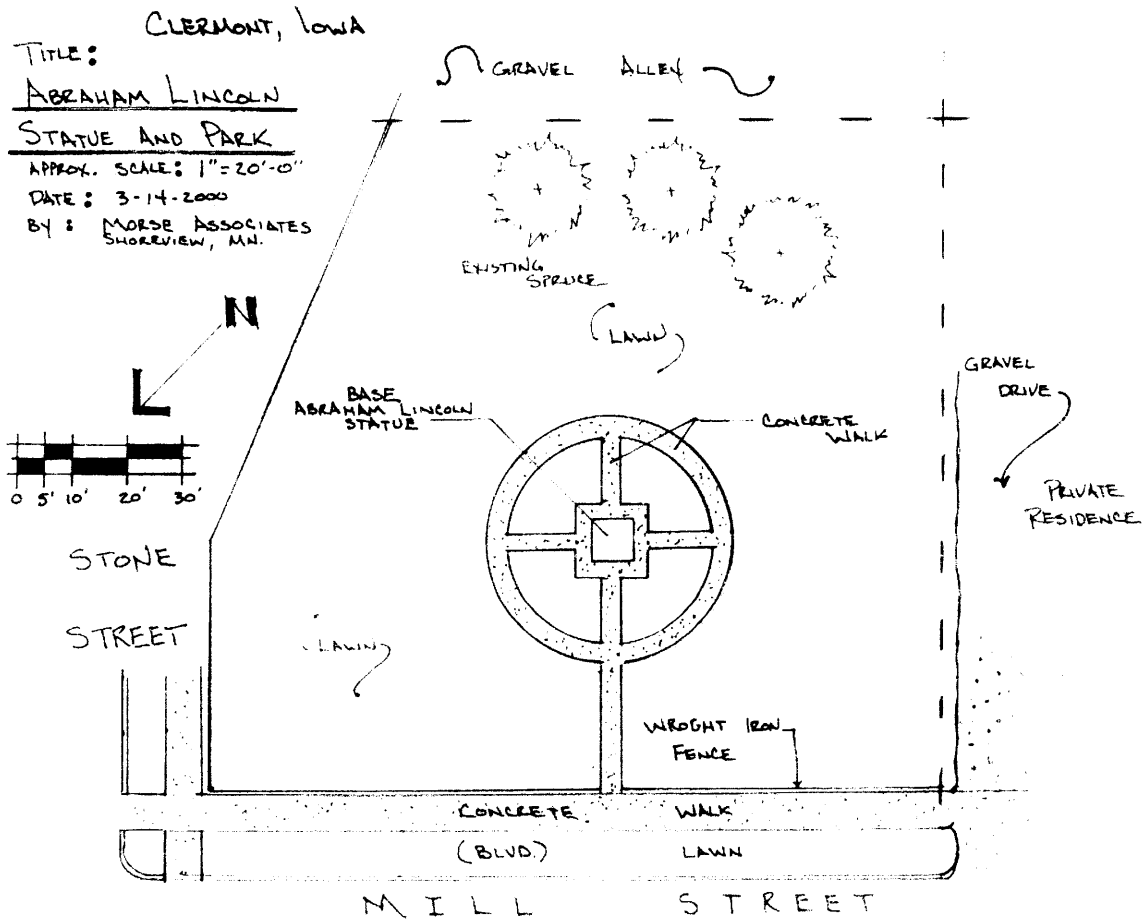 CLERMONT, IOWA
TITLE:
ABRAHAM LINCOLN
STATUE AND PARK
APPROX. SCALE: 1"=20'-0"
DATE: 3-14-2000
BY: MORSE ASSOCIATES
SHOREVIEW, MN.
GRAVEL ALLEY
EXISTING
SPRUCE
LAWN
N
0 5' 10' 20' 30'
BASE
ABRAHAM LINCOLN
STATUE
CONCRETE
WALK
GRAVEL
DRIVE
PRIVATE
RESIDENCE
STONE
STREET
LAWN
WROGHT IRON
FENCE
CONCRETE WALK
(BLVD.) LAWN
MILL STREET